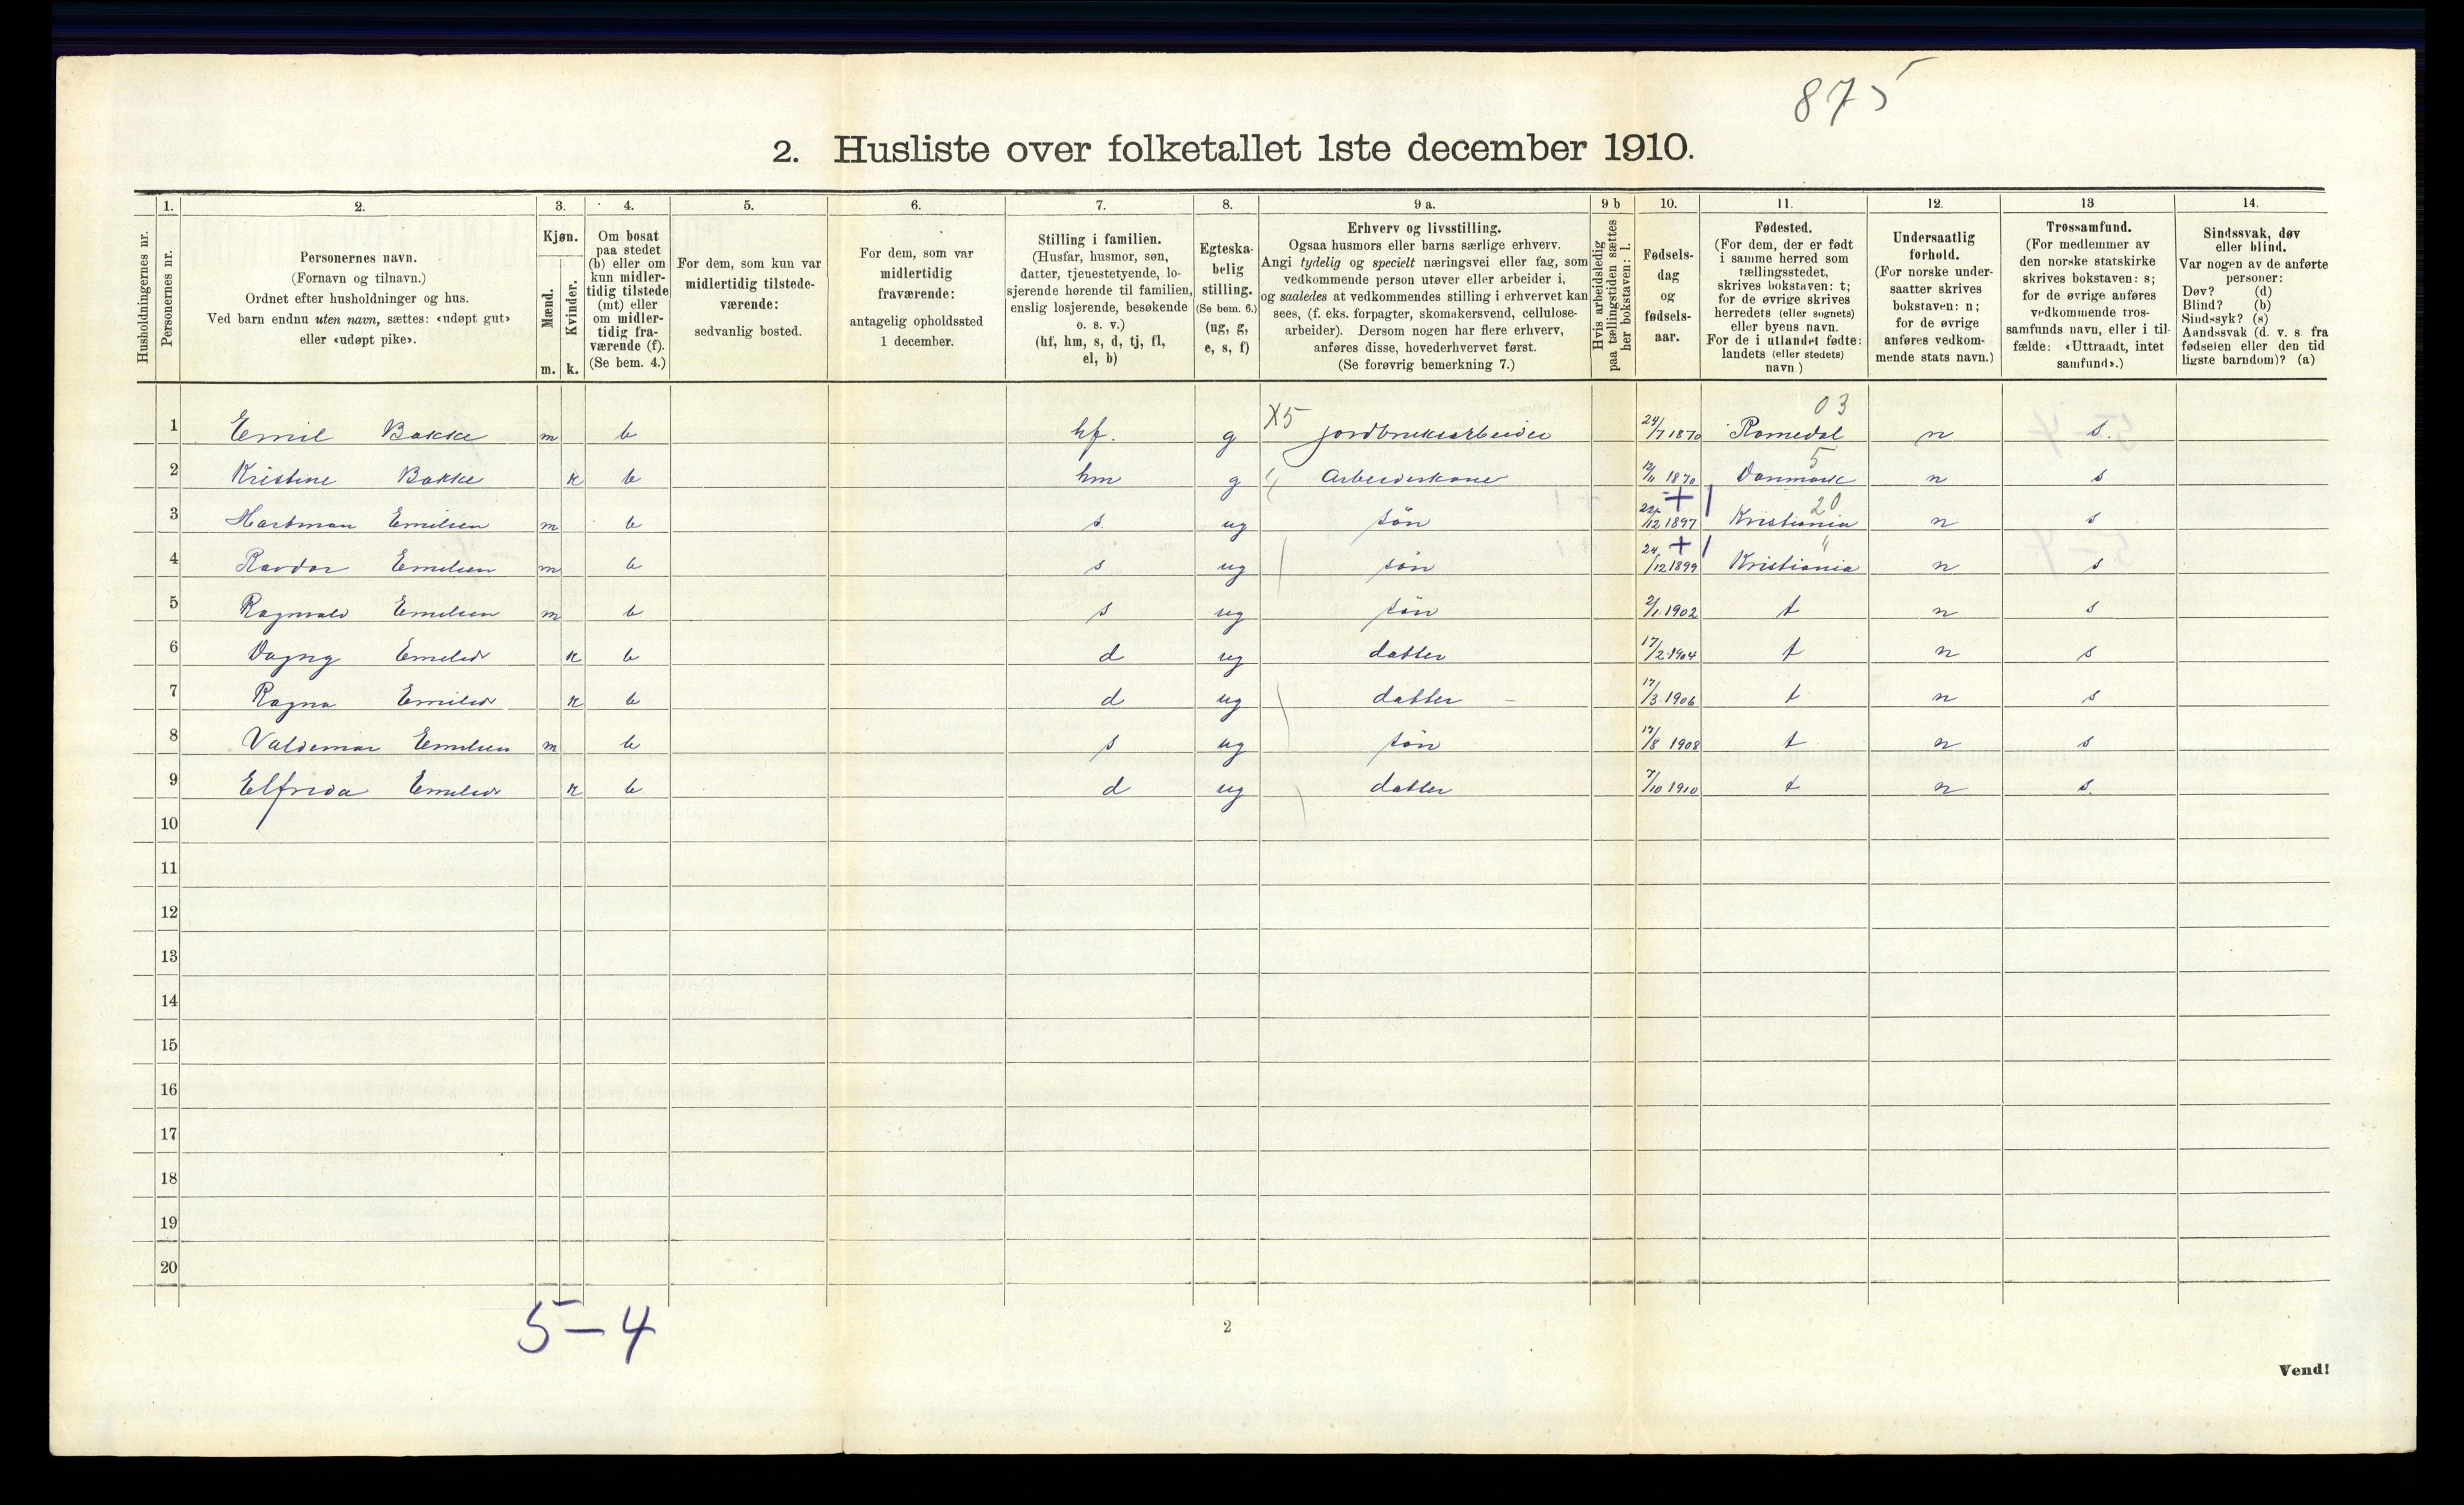 875
2. Husliste over folketallet 1ste december 1910.
Husholdningernes nr.
1.
Personernes nr.
2.
Personernes navn.
(Fornavn og tilnavn.)
Ordnet efter husholdninger og hus.
Ved barn endnu uten navn, sættes: «udøpt gut»
eller «udøpt pike».
3.
Kjøn.
Mænd.
Kvinder.
m. k.
4.
Om bosat
paa stedet
(b) eller om
kun midler-
tidig tilstede
(mt) eller
om midler-
tidig fra-
værende (f).
(Se bem. 4.)
5.
For dem, som kun var
midlertidig tilstede-
værende:
sedvanlig bosted.
6.
For dem, som var
midlertidig
fraværende:
antagelig opholdssted
1 december.
7.
Stilling i familien.
(Husfar, husmor, søn,
datter, tjenestetyende, lo-
sjerende hørende til familien,
enslig losjerende, besøkende
o. s. v.)
(hf, hm, s, d, tj, fl,
el, b)
8.
Egteska-
belig
stilling.
(Se bem. 6.)
(ug, g,
e, s, f)
9 a.
Erhverv og livsstilling.
Ogsaa husmors eller barns særlige erhverv.
Angi tydelig og specielt næringsvei eller fag, som
vedkommende person utøver eller arbeider i,
og saaledes at vedkommendes stilling i erhvervet kan
sees, (f. eks. forpagter, skomakersvend, cellulose-
arbeider). Dersom nogen har flere erhverv,
anføres disse, hovederhvervet først.
(Se forøvrig bemerkning 7.)
9 b
Hvis arbeidsledig
paa tællingstiden sættes
her bokstaven: l.
10.
Fødsels-
dag
og
fødsels-
aar.
11.
Fødested.
(For dem, der er født
i samme herred som
tællingsstedet,
skrives bokstaven: t;
for de øvrige skrives
herredets (eller sognets)
eller byens navn.
For de i utlandet fødte:
landets (eller stedets)
navn)
12.
Undersaatlig
forhold.
(For norske under-
saatter skrives
bokstaven: n;
for de øvrige
anføres vedkom-
mende stats navn.)
13
Trossamfund.
(For medlemmer av
den norske statskirke
skrives bokstaven: s;
for de øvrige anføres
vedkommende tros-
samfunds navn, eller i til-
fælde: «Uttraadt, intet
samfund».)
14.
Sindssvak, døv
eller blind.
Var nogen av de anførte
personer:
Døv? (d)
Blind? (b)
Sindssyk? (s)
Aandssvak (d. v. s. fra
fødselen eller den tid
ligste barndom)? (a)
03
1 Emil Bakke m b hf. g X5 jordbruksarbeider 24/7 1870 Romedal n s.
5
2 Kristine Bakke k b hm g Arbeiderskone 12/11 1870 Danmark n s
+ 20
3 Hartman Emilsen m b s. ug søn 22/12 1897 Kristiania n s
+ "
4 Reidar Emilsen m b s ug søn 24/12 1899 Kristiania n s
5 Ragnvald Emilsen m b s ug søn 2/1 1902 t n s
6 Dagny Emilsd k b d ug datter 17/2 1904 t n s
7 Ragna Emilsd k b d ug datter 17/3 1906 t n s
8 Valdemar Emilsen m b s ug søn 17/8 1908 t n s
9 Elfrida Emilsd k b d ug datter 7/10 1910 t n s.
10
11
12
13
14
15
16
17
18
19
20
5-4
2
Vend!